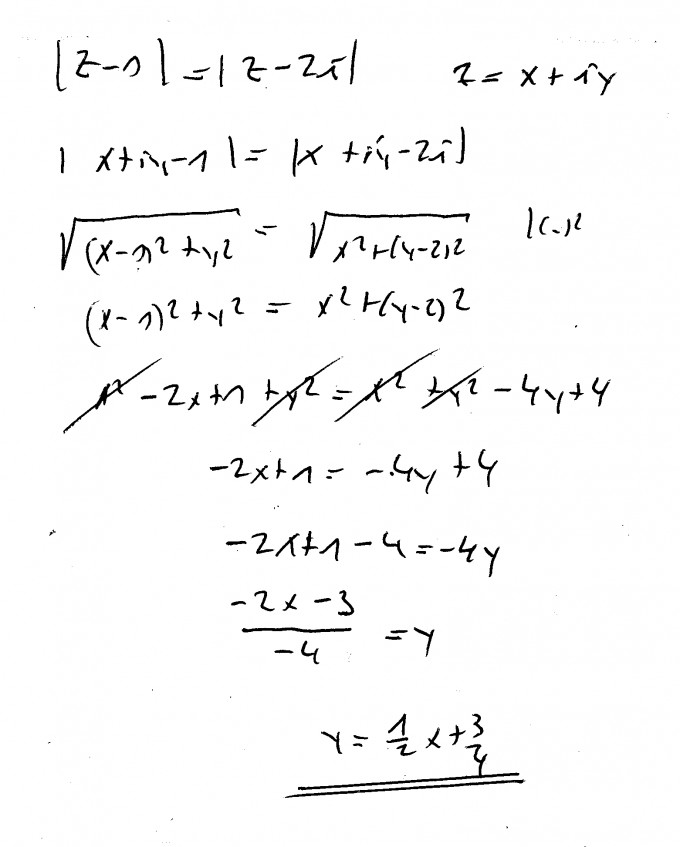 |z-1| = |z-2i| z = x + iy
| x+iy-1 | = |x +iy-2i|
√((x-1)² + y²) = √(x²+(y-2)²) |(..)²
(x-1)² + y² = x² + (y-2)²
x² - 2x + 1 + y² = x² + y² - 4y + 4
-2x + 1 = -4y + 4
-2x + 1 - 4 = -4y
(-2x - 3)/(-4) = y
y = 1/2 x + 3/4